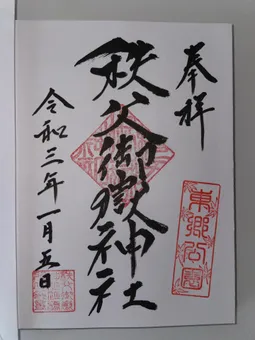 奉祥
秩父御嶽神社
令和三年一月五日
東郷公園